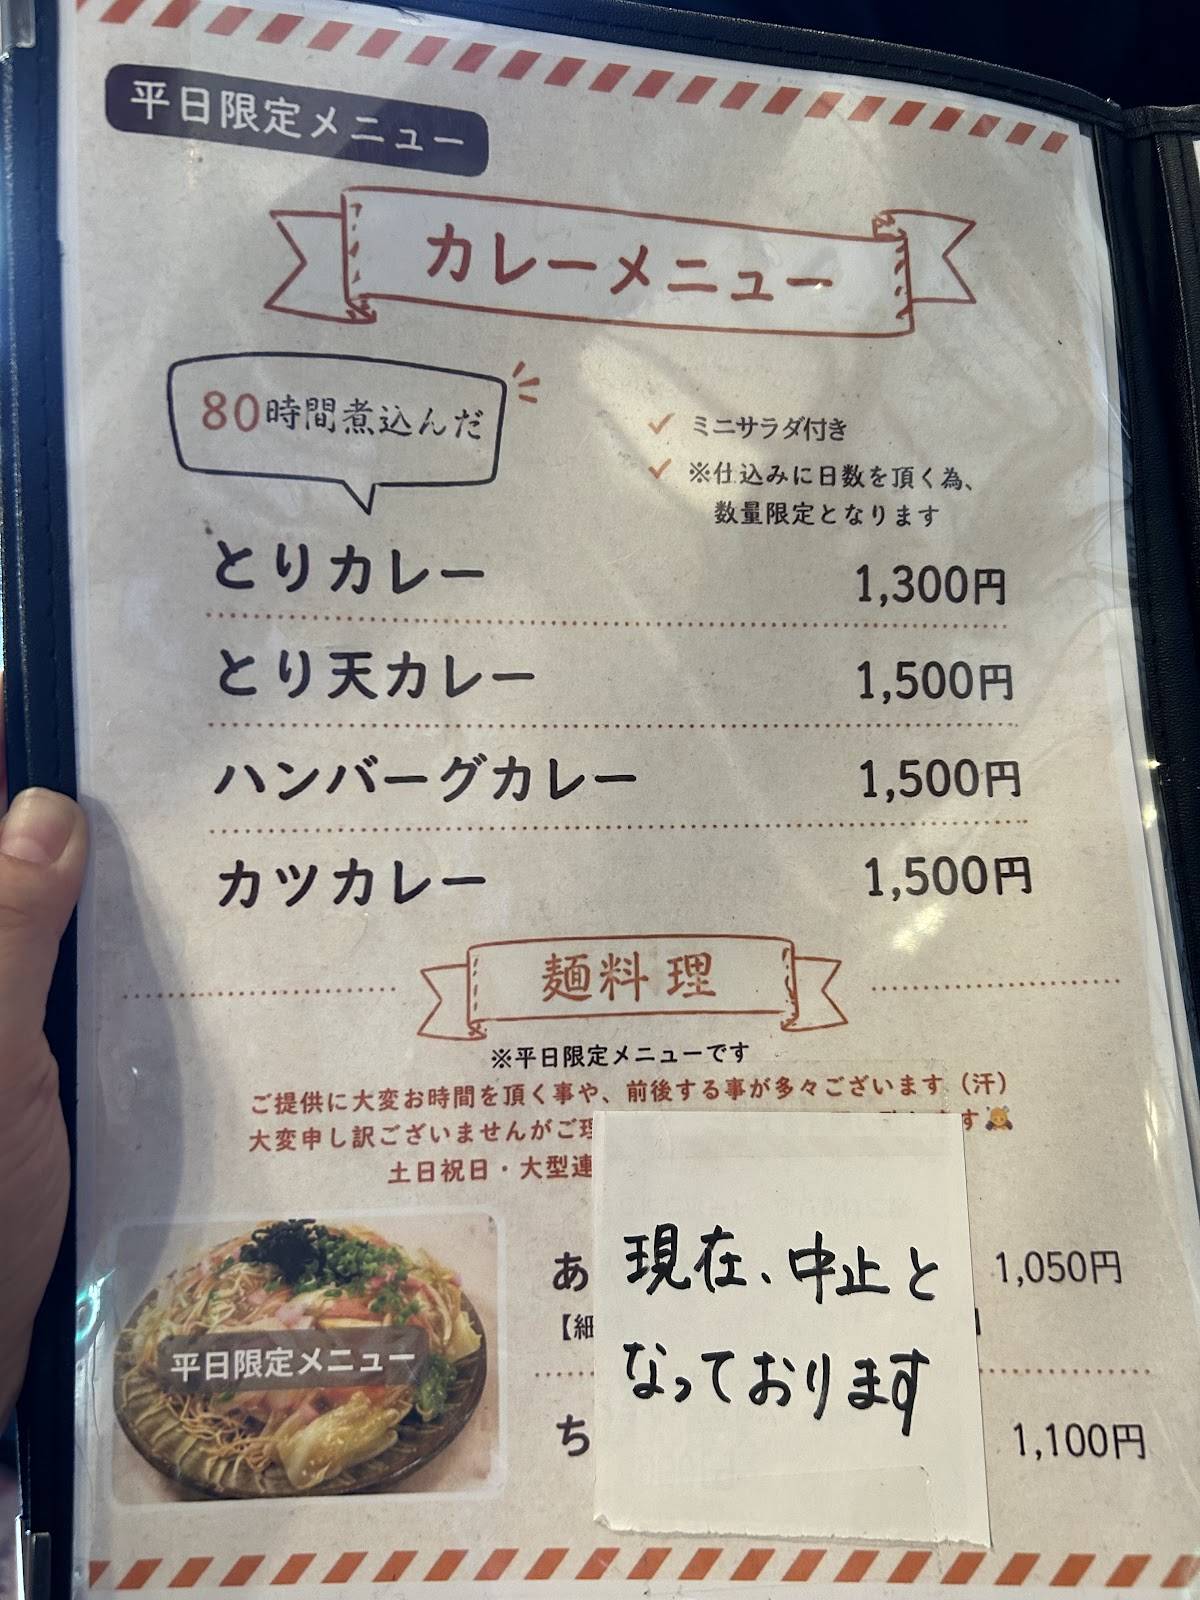 平日限定メニュー
カレーメニュー
80時間煮込んだ
✓ ミニサラダ付き
✓ ※仕込みに日数を頂く為、
数量限定となります
とりカレー 1,300円
とり天カレー 1,500円
ハンバーグカレー 1,500円
カツカレー 1,500円
麺料理
※平日限定メニューです
ご提供に大変お時間を頂く事や、前後する事が多々ございます（汗）
大変申し訳ございませんがご理 す🙇
土日祝日・大型連
あ 1,050円
【細 】
ち 1,100円
現在、中止と
なっております
平日限定メニュー